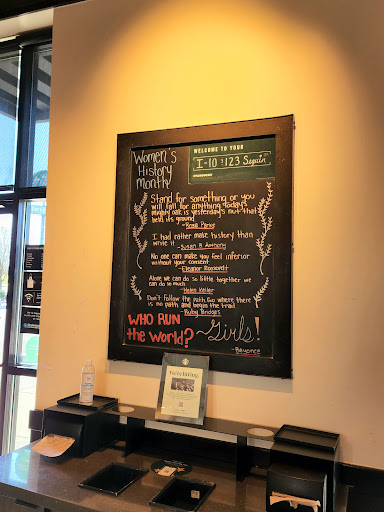 WELCOME TO YOUR
I-10 & 123 Seguin
STARBUCKS
Women's
History
Month
Stand for something or you
will fall for anything. Today's
mighty oak is yesterday's nut that
held its ground
-Rosa Parks
I had rather make history than
write it -Susan B Anthony
No one can make you feel inferior
without your consent
-Eleanor Roosevelt
Alone we can do so little together we
can do so much
-Helen Keller
Don't follow the path. Go where there
is no path and begin the trail.
-Ruby Bridges
WHO RUN
the WORLD?
Girls!
-Beyonce
We're hiring